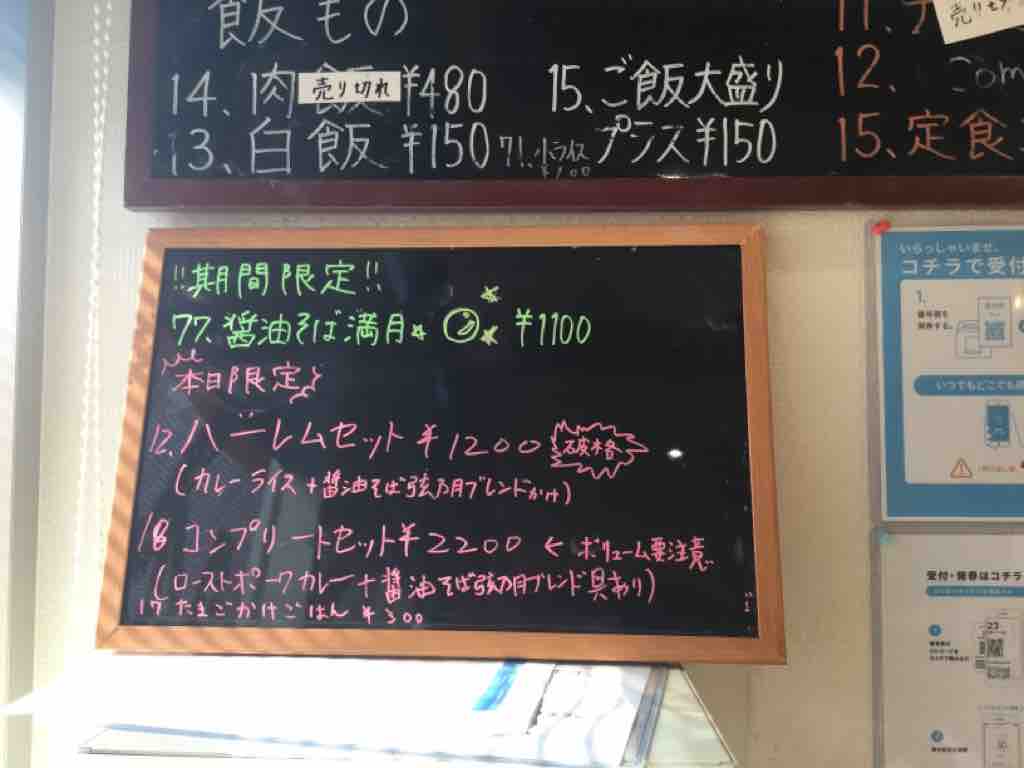 飯もの
14、肉 売り切れ ¥480
15、ご飯大盛り
13、白飯 ¥150
71、小ライス
¥100
プラス¥150
11、
売り切
12、
15、定食
!!期間限定!!
77、醤油そば満月 ¥1100
本日限定
12、ハーレムセット ¥1200 破格
(カレーライス+醤油そば弦乃月ブレンドかけ)
18 コンプリートセット¥2200 ← ボリューム要注意
(ローストポークカレー+醤油そば弦乃月ブレンド具あり)
17 たまごかけごはん ¥300
いらっしゃいませ。
コチラで受付
1.
番号券を
発券する。
いつでもどこでも
受付・発券はコチラ
1
23
2